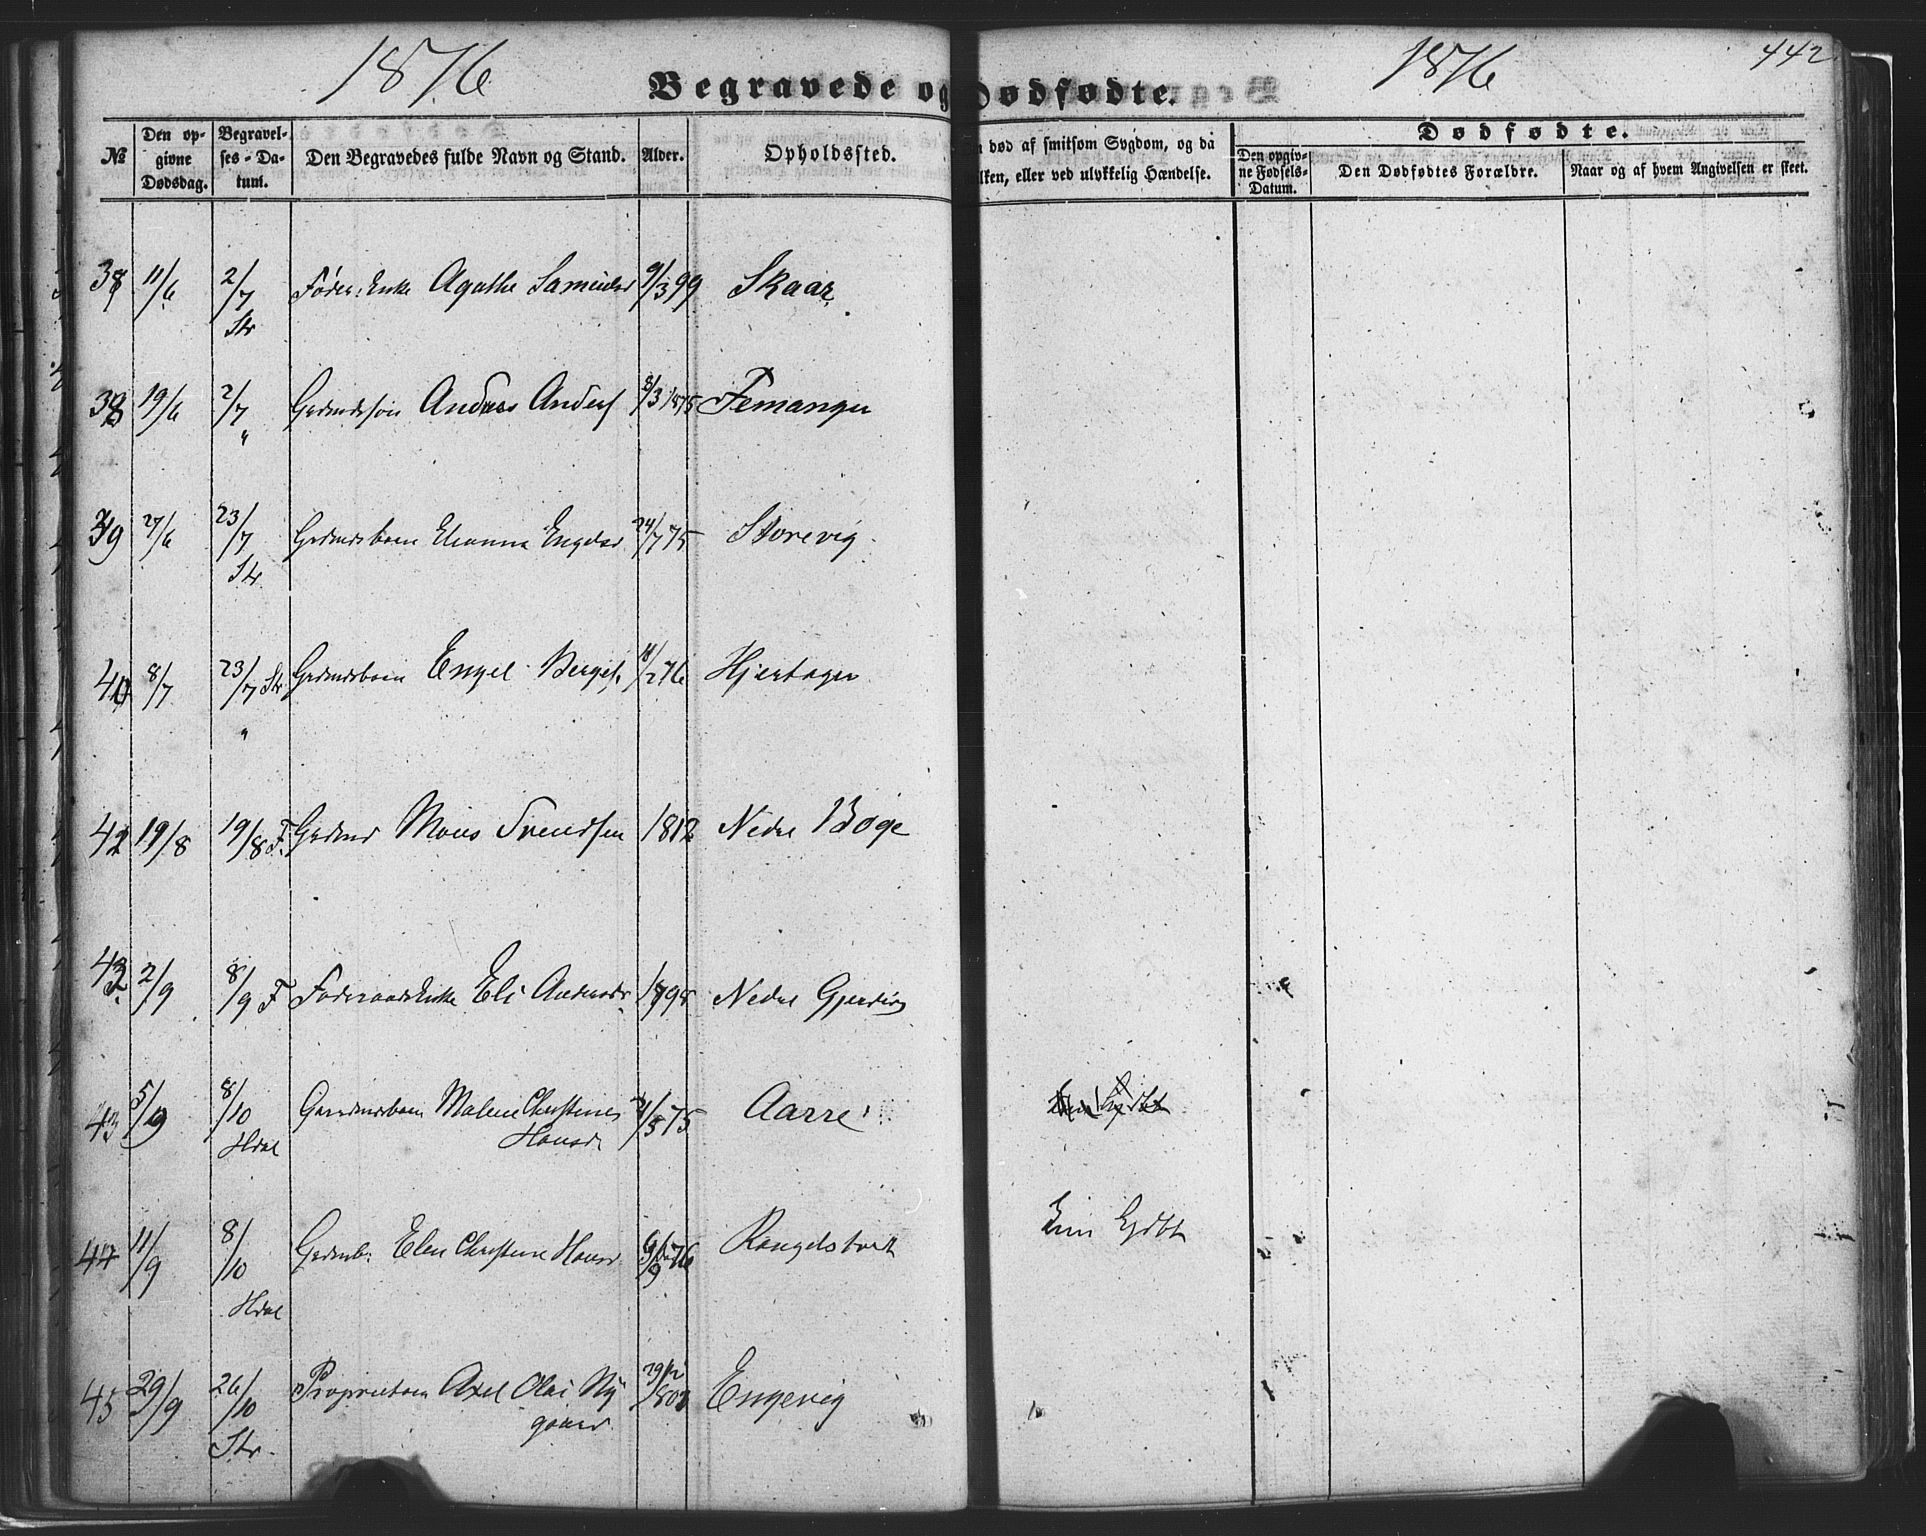 1876 1876 442
Begravede og Dødfødte.
Dødfødte.
№ Den opgivne Dødsdag. Begravelses-Datum. Den Begravedes fulde Navn og Stand. Alder. Opholdssted. død af smitsom Sygdom, og da
ilken, eller ved ulykkelig Hændelse. Den opgivne Fødsels-Datum. Den Dødfødtes Forældre. Naar og af hvem Angivelsen er skeet.
38 11/6 2/7 Føder: Enke Agathe Samuelsd 9/3 99 Skaar
Str
38 19/6 2/7 Grdmdssön Anders Anders 8/3 1875 Femanger
"
39 27/6 23/7 Grdmdsbarn Engelsd 24/7 75 Storevig
Str
40 8/7 23/7 Str Grdmdsbarn Engel 18/2 76 Hjertager
"
42 19/8 19/8 F. Grdmd Mons Svendsen 1812 Nedre Böge
43 2/9 8/9 F Föderaadsenke Eli Andersdr 1798 Nedre Gjerding
43 5/9 8/10 Gaardmdsbarn Malene Christine 4/5 75 Aarre
Hdal Hansdr
44 11/9 8/10 Grdmb: Elen Christine Hansd 9/9 76 Rangelstvet
Hdal
45 29/9 26/10 Axel Olai Ny 29/12 Engevig
Str. gaard